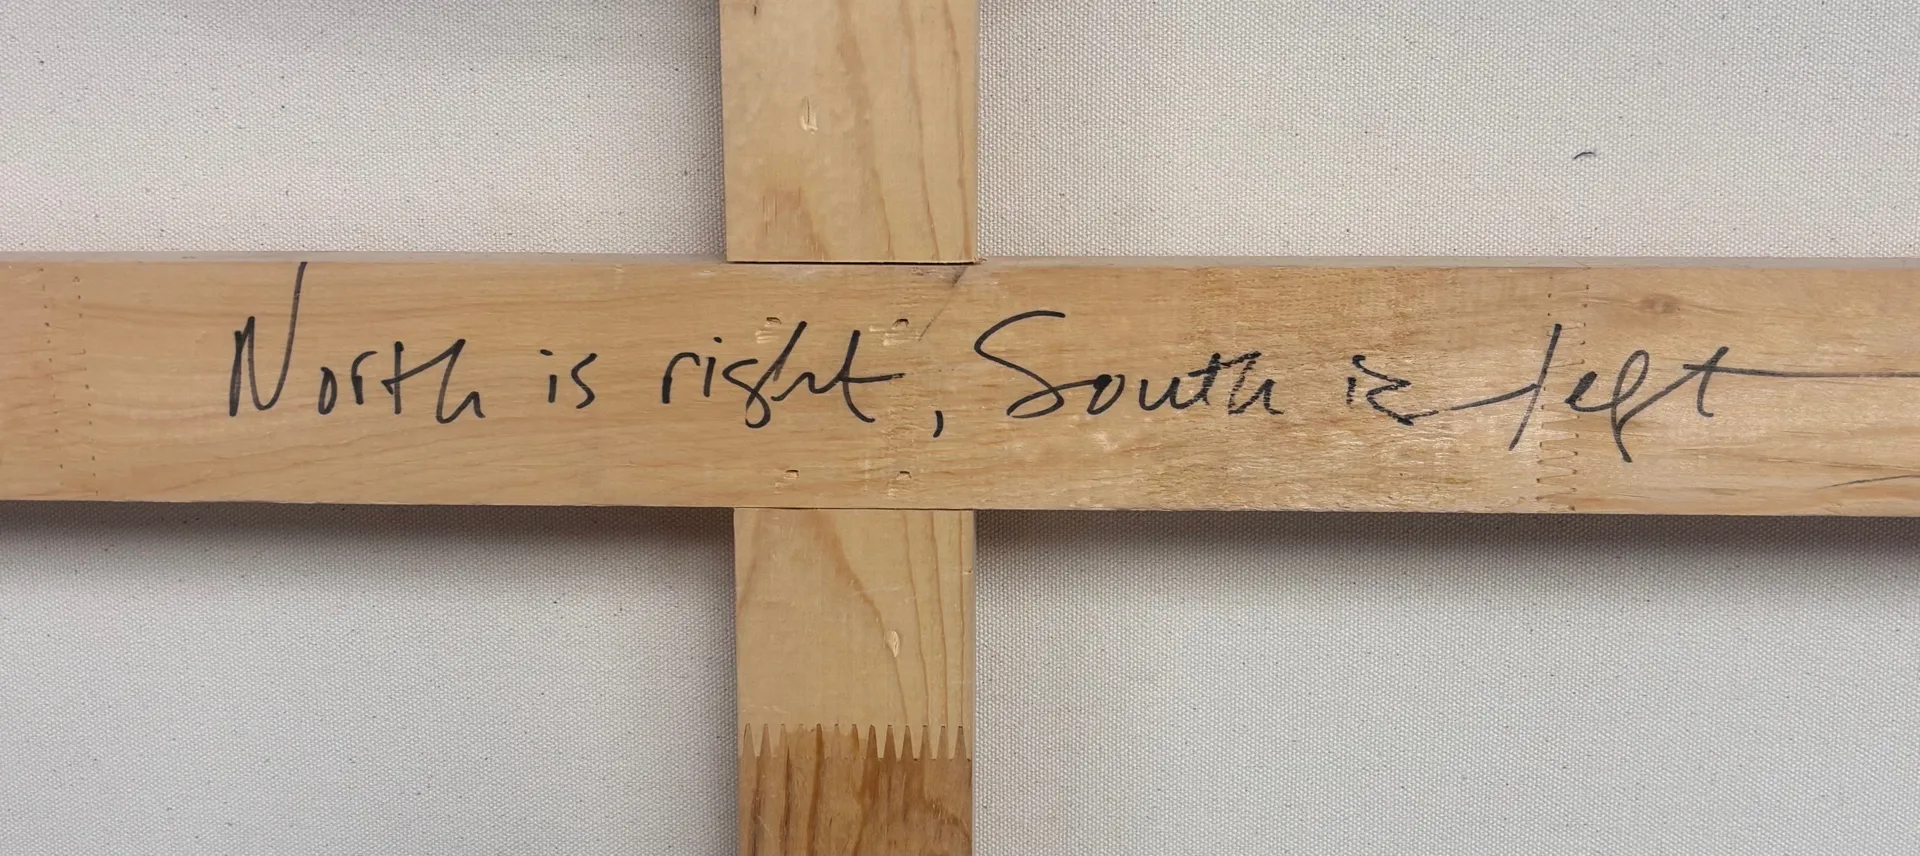 North is right, South is left